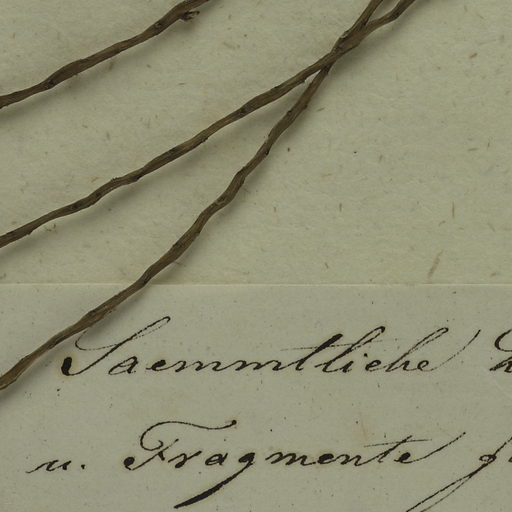 Saemmtliche
u. Fragmente